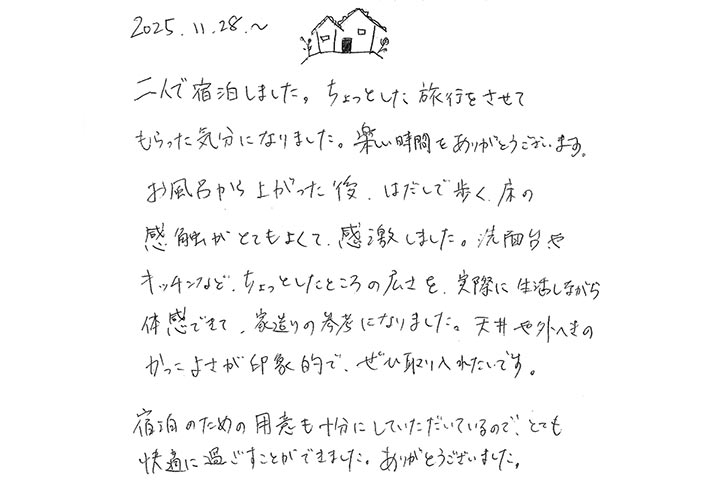 2025.11.28.〜
二人で宿泊しました。ちょっとした旅行をさせて
もらった気分になりました。楽しい時間をありがとうございます。
お風呂から上がった後、はだしで歩く、床の
感触がとてもよくて、感激しました。洗面台や
キッチンなど、ちょっとしたところの広さを、実際に生活しながら
体感できて、家造りの参考になりました。天井や外へきの
かっこよさが印象的で、ぜひ取り入れたいです。
宿泊のための用意も十分にしていただいているので、とても
快適に過ごすことができました。ありがとうございました。